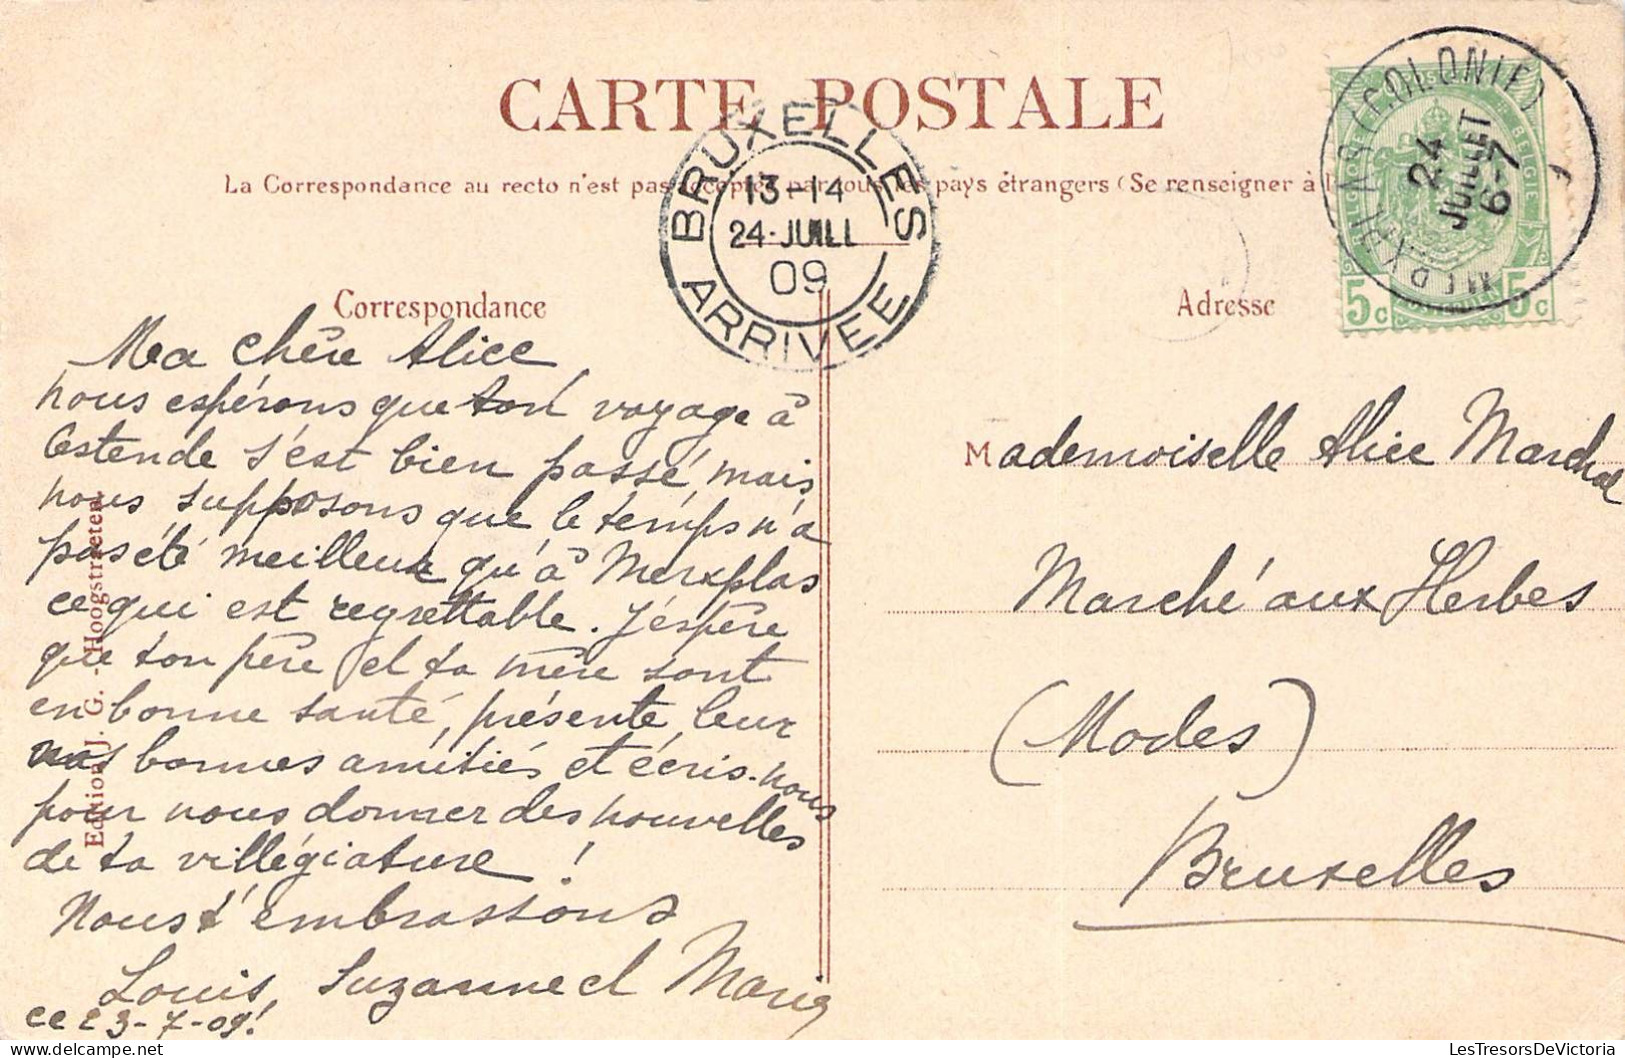 CARTE POSTALE
La Correspondance au recto n'est pas acceptée par tous les pays étrangers (Se renseigner à
BRUXELLES
13-14
24·JUILL
09
ARRIVEE
(COLONIE)
24
JUILLET
6-7
BELGIE
5c 5c
Correspondance
Ma chère Alice
nous espérons que ton voyage à
Ostende s'est bien passé, mais
nous supposons que le temps n'a
pas été meilleur qu'à Merxplas
ce qui est regrettable. J'éspère
que ton père et ta mère sont
en bonne santé, présente leur
nos bonnes amitiés et écris-nous
pour nous donner des nouvelles
de ta villégiature !
Nous t'embrassons
Louis, Suzanne et Maria
ce 23-7-09!
Edition J. G. - Hoogstraeten.
Adresse
Mademoiselle Alice Marchal
Marché aux Herbes
(Modes)
Bruxelles
LesTresorsDeVictoria